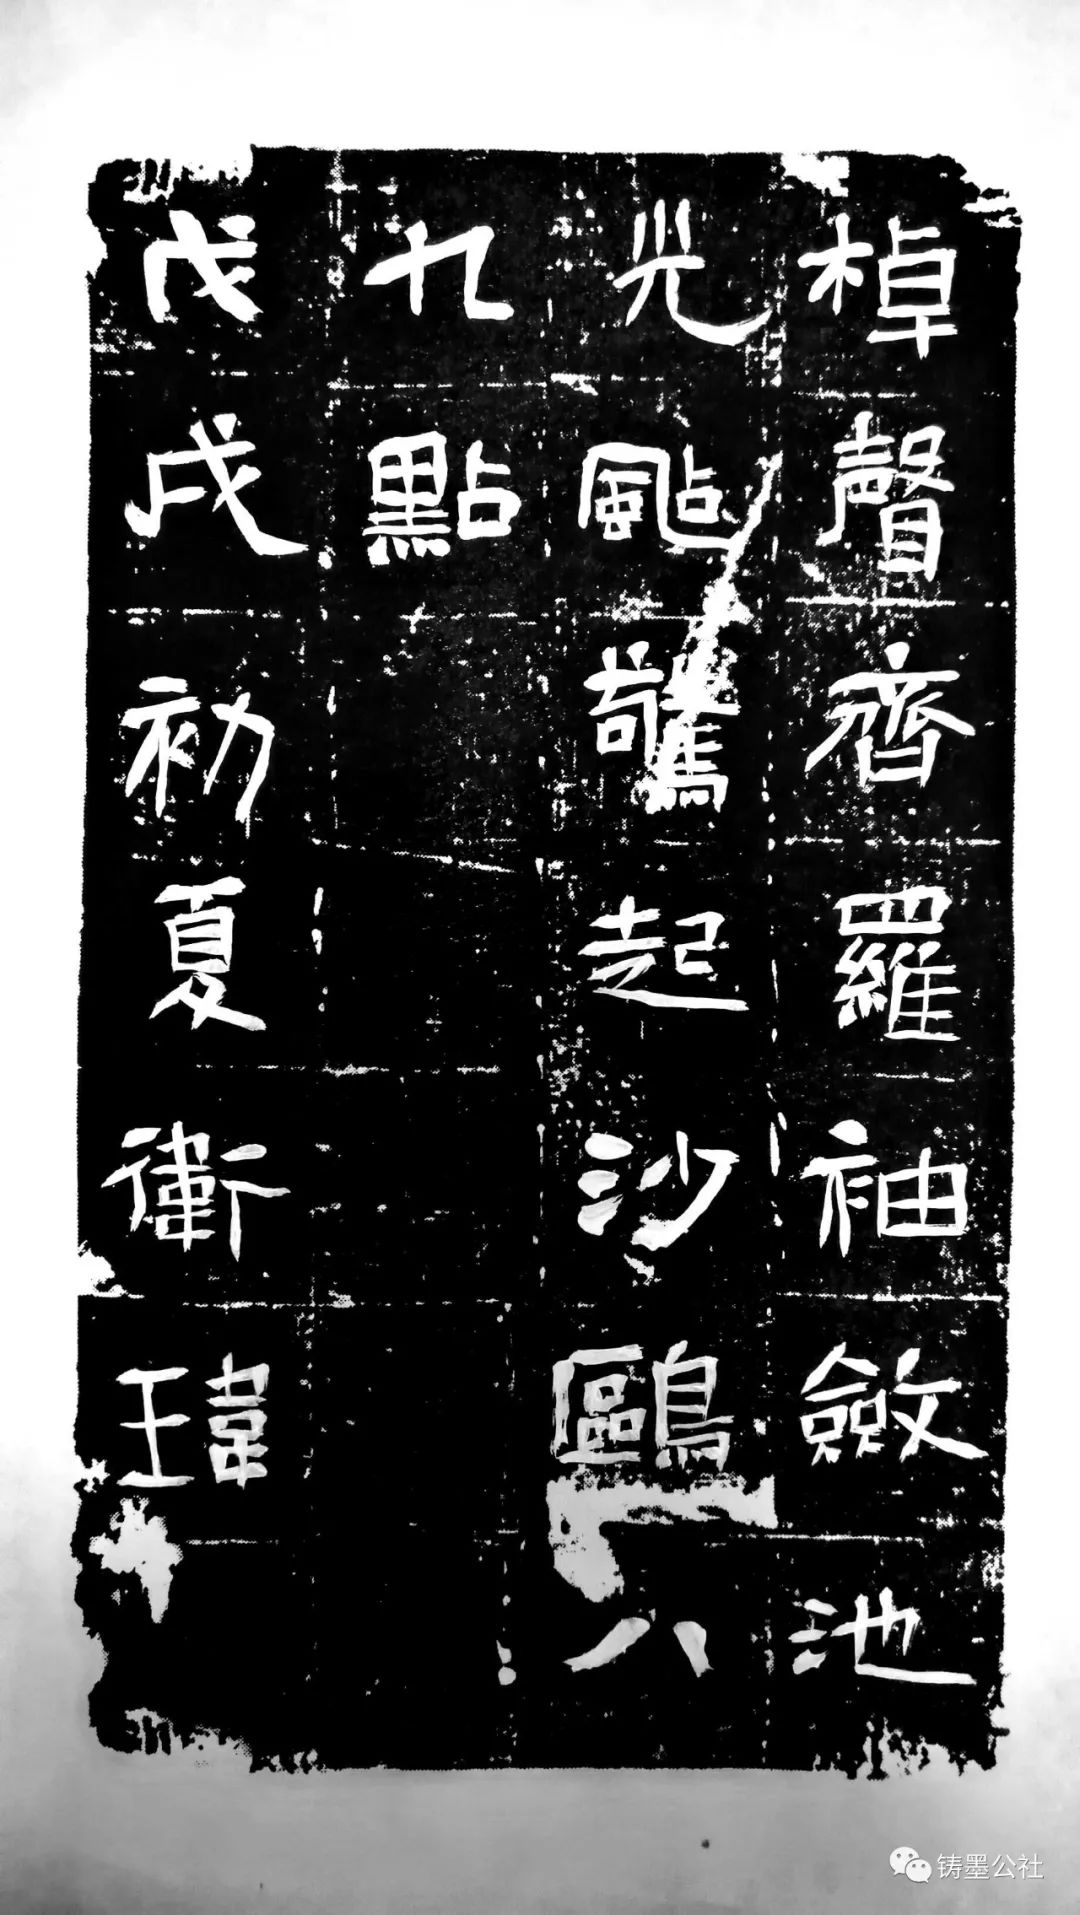 棹聲齊羅袖斂池
光颭驚起沙鷗八
九點
戊戌初夏衛瑋
铸墨公社